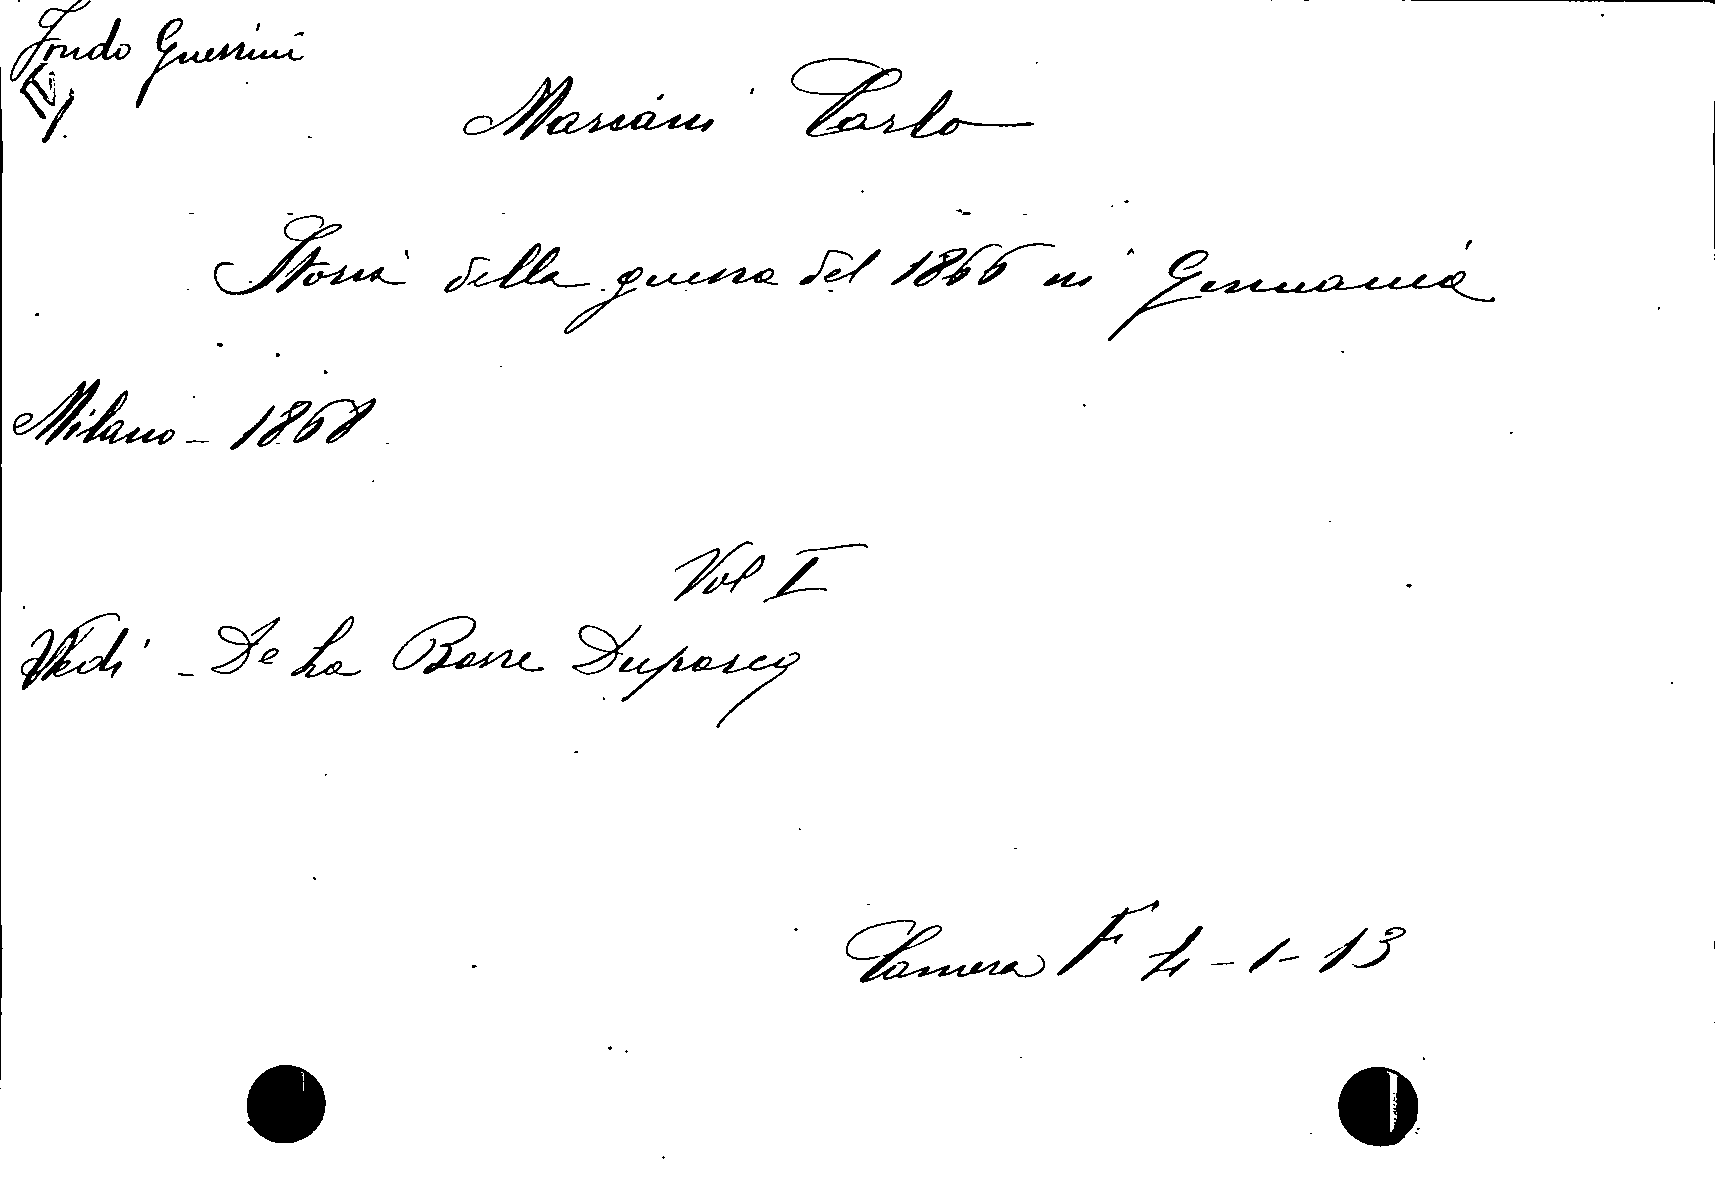 Fondo Guerrini
Mariani Carlo
Storia della guerra del 1866 in Germania
Milano - 1868
Vol I
Vedi - De La Barre Duparcq
Camera F 4-1-13